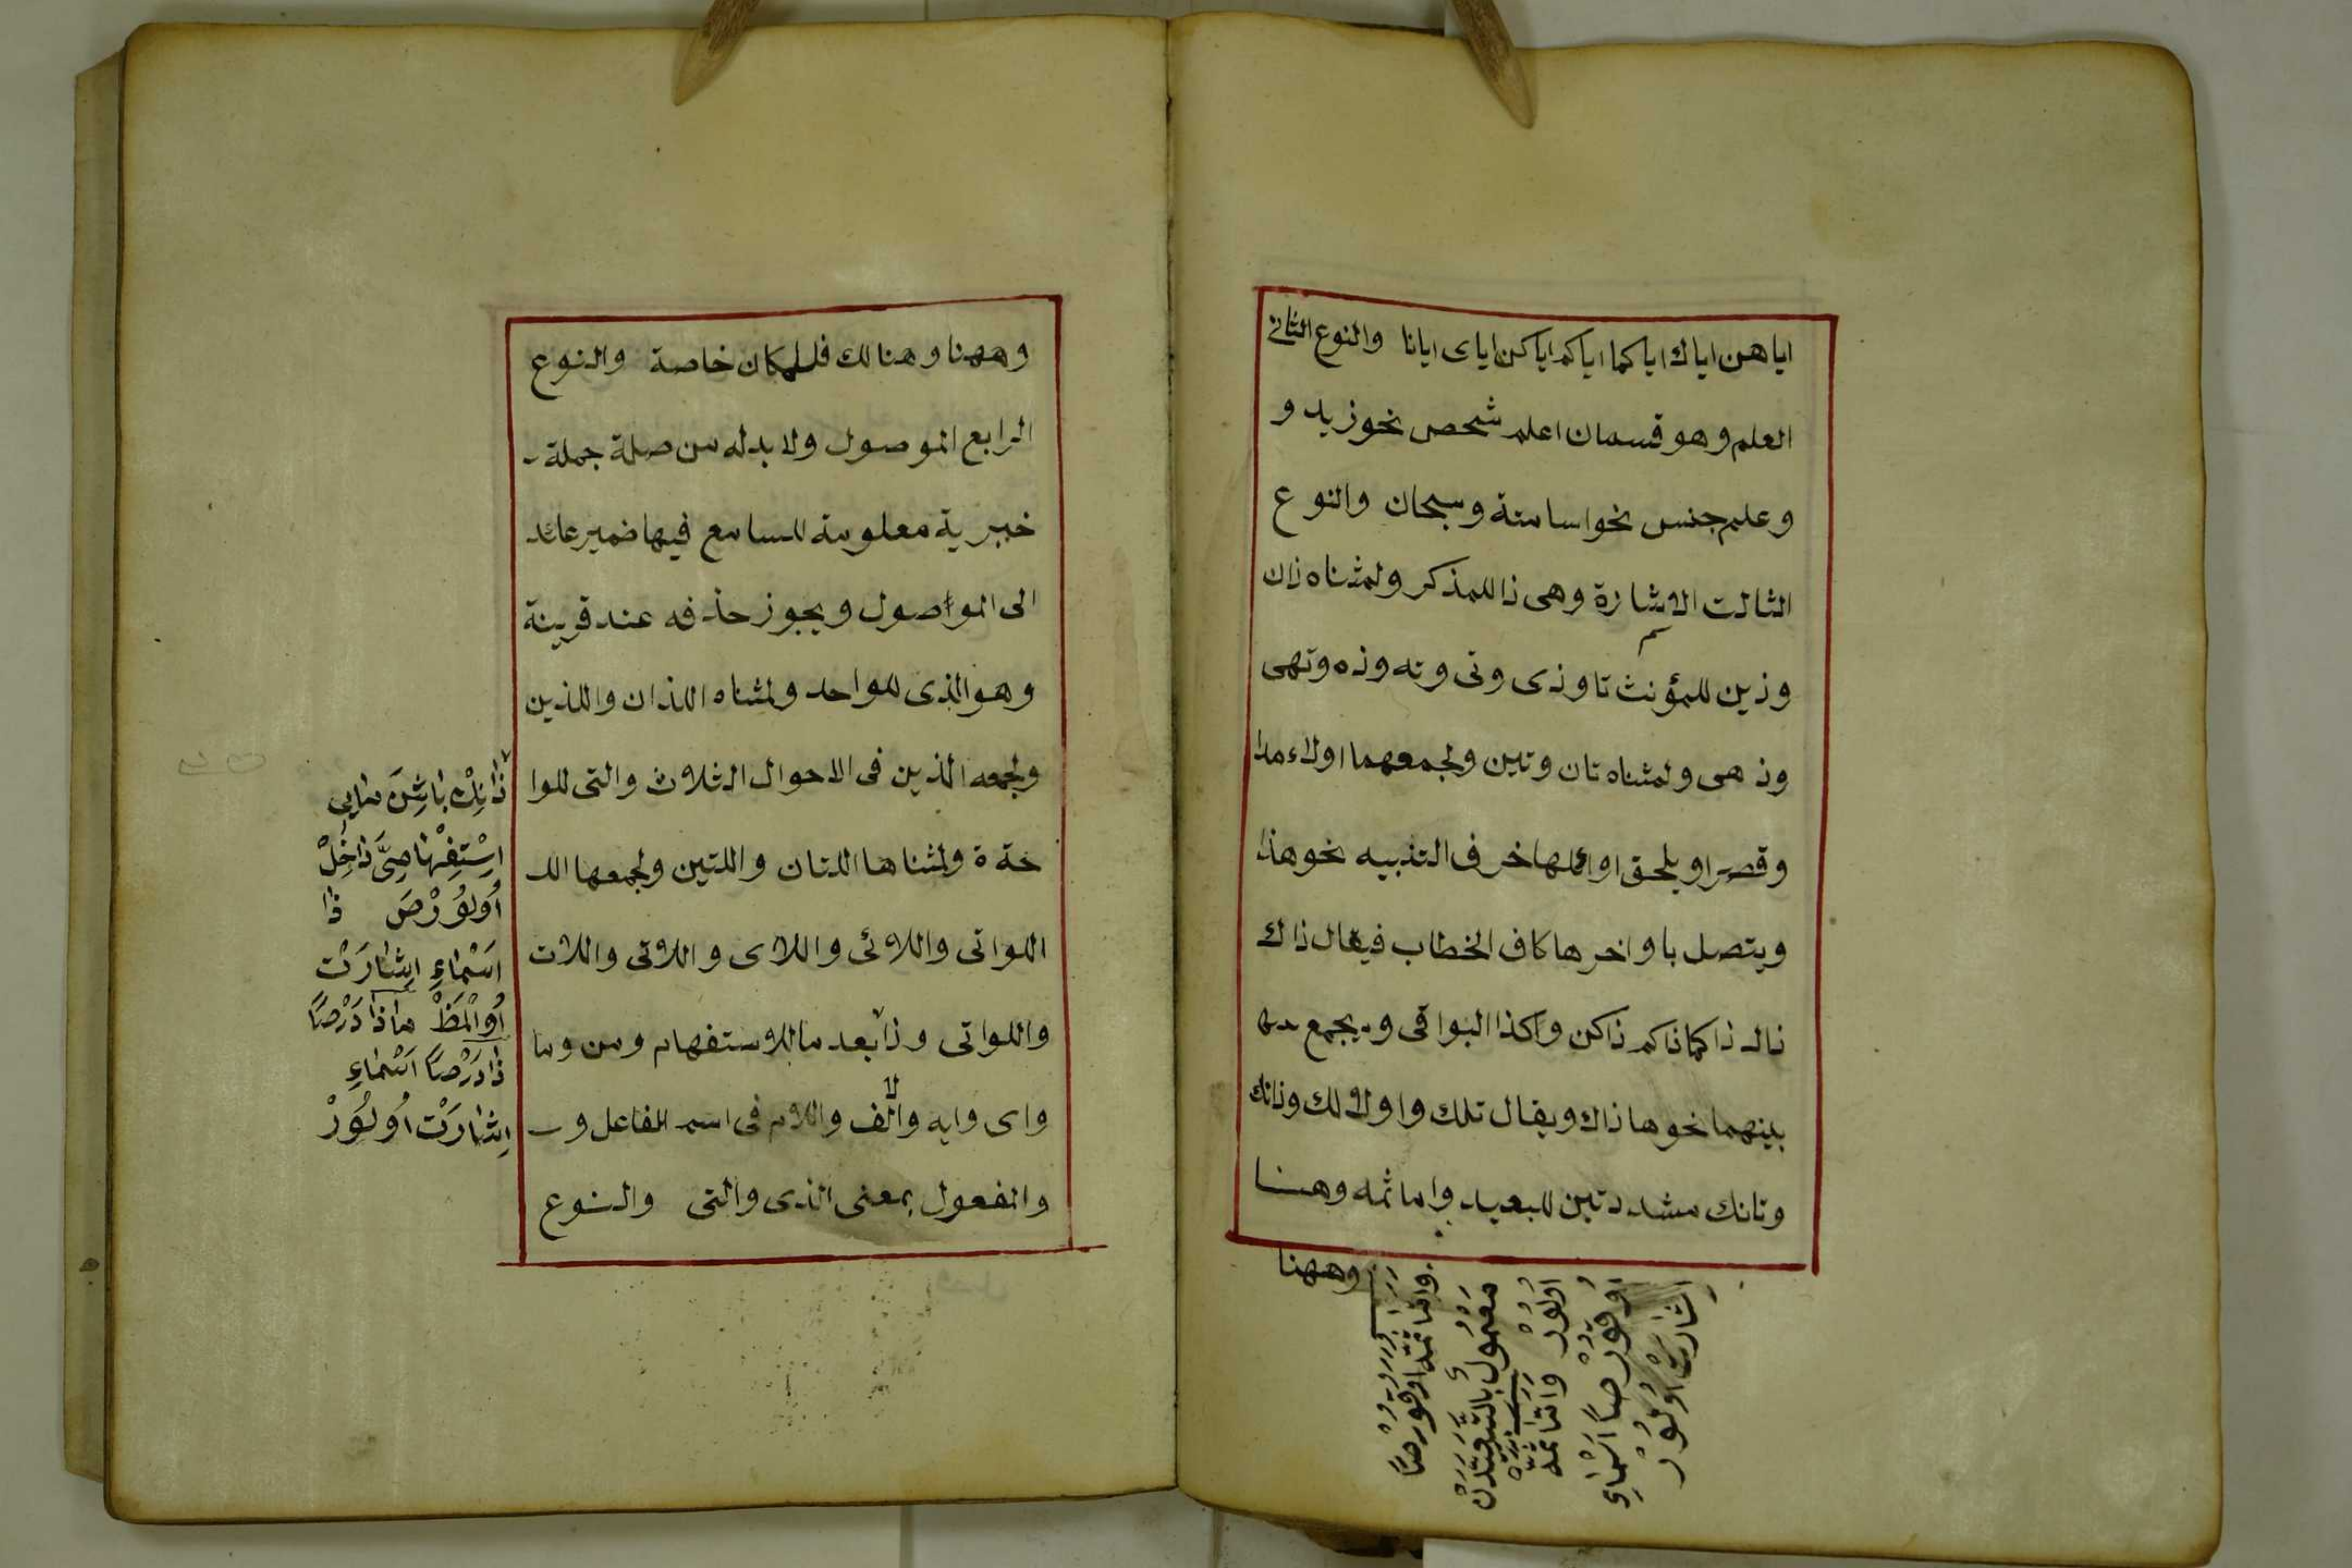 اياهن اياك اياكما اياكم اياكن اياى ايانا والنوع الثانى
العلم وهو قسمان اعلم شخص نحو زيد و
وعلم جنس نحو اسامة وسبحان والنوع
الثالث الاشارة وهى ذا للمذكر ولمثناه ذان
وذين للمؤنث تا وذى وتى وته وذه وتهى
وذهى ولمثناه تان وتين ولجمعهما اولاء مدا
وقصرا ويلحق اوائلها حرف التنبيه نحو هذا
ويتصل باواخرها كاف الخطاب فيقال ذاك
ذاكما ذاكم ذاكن وكذا البواقى ويجمع
بينهما نحو هاذاك ويقال تلك واولالك وذانك
وتانك مشددتين للبعيد واما ثمه وهنا
وههنا
واما ثمه اوقورصا
معمول
اولور واما ثمه
اوقورصا اسماء
اشارت اولور
وههنا وهنالك فللمكان خاصة والنوع
الرابع الموصول ولا بدله من صلة جملة
خبرية معلومة للسامع فيها ضمير عائد
الى المواصول ويجوز حذفه عند قرينة
وهو الذى للواحد ولمثناه اللذان واللذين
ولجمعه الذين فى الاحوال الثلاث والتى للوا
حدة ولمثناها اللتان واللتين ولجمعها الل
اللواتى واللائى واللاى واللاتى واللات
واللواتى وذا بعد ما للاستفهام ومن وما
واى وايه والالف واللام فى اسم الفاعل و
والمفعول بمعنى الذى والتى والنوع
ذَانِكْ بَاشِنَ مَايِى
اِسْتِفْهَامِيَّ دَاخِلْ
اُولُوْرْصَ ذَا
اَسْمَاءِ اِشَارَتْ
اُوْلمَظْ مَاذَا دَرْصَاً
ذَا دَرْصَاً اَسْمَاءِ
اِشَارَتْ اُولُوَرْ